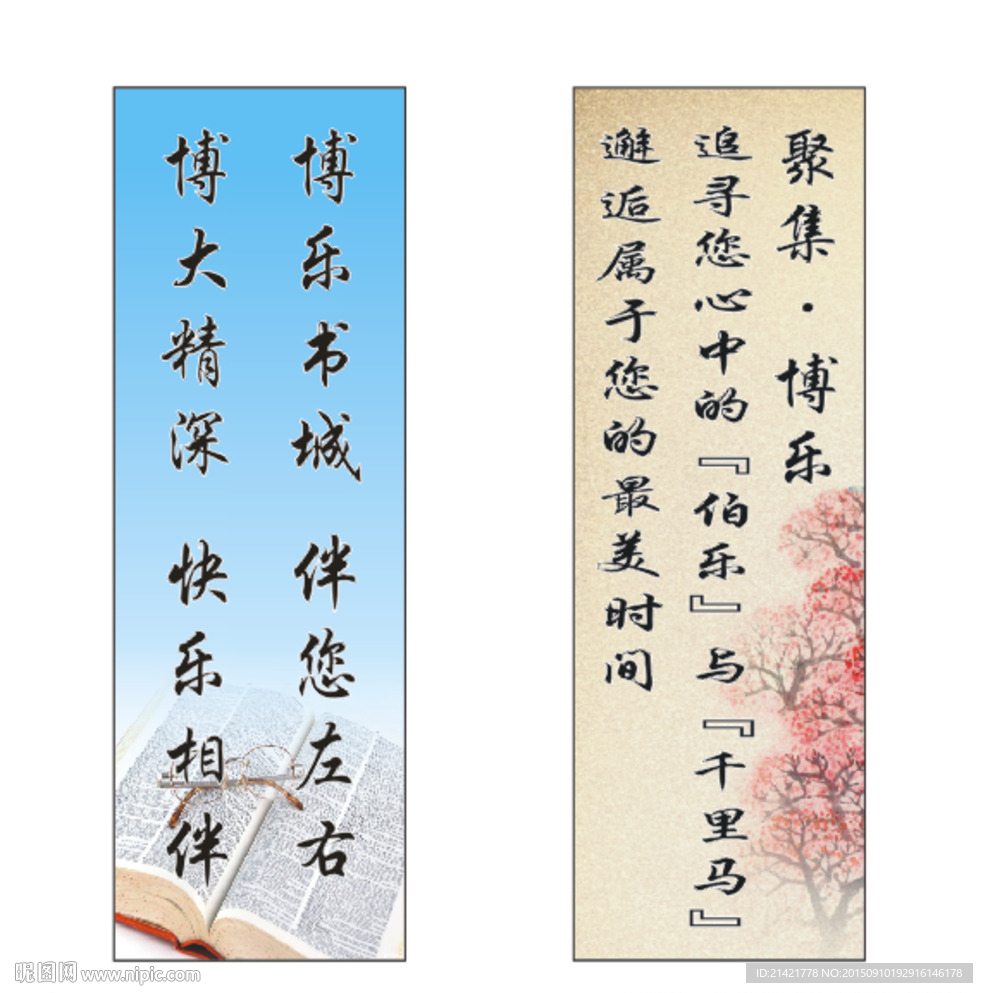 博乐书城 伴您左右
博大精深 快乐相伴
聚集·博乐
追寻您心中的『伯乐』与『千里马』
邂逅属于您的最美时间
昵图网 www.nipic.com
ID:21421778 NO:20150910192916146178